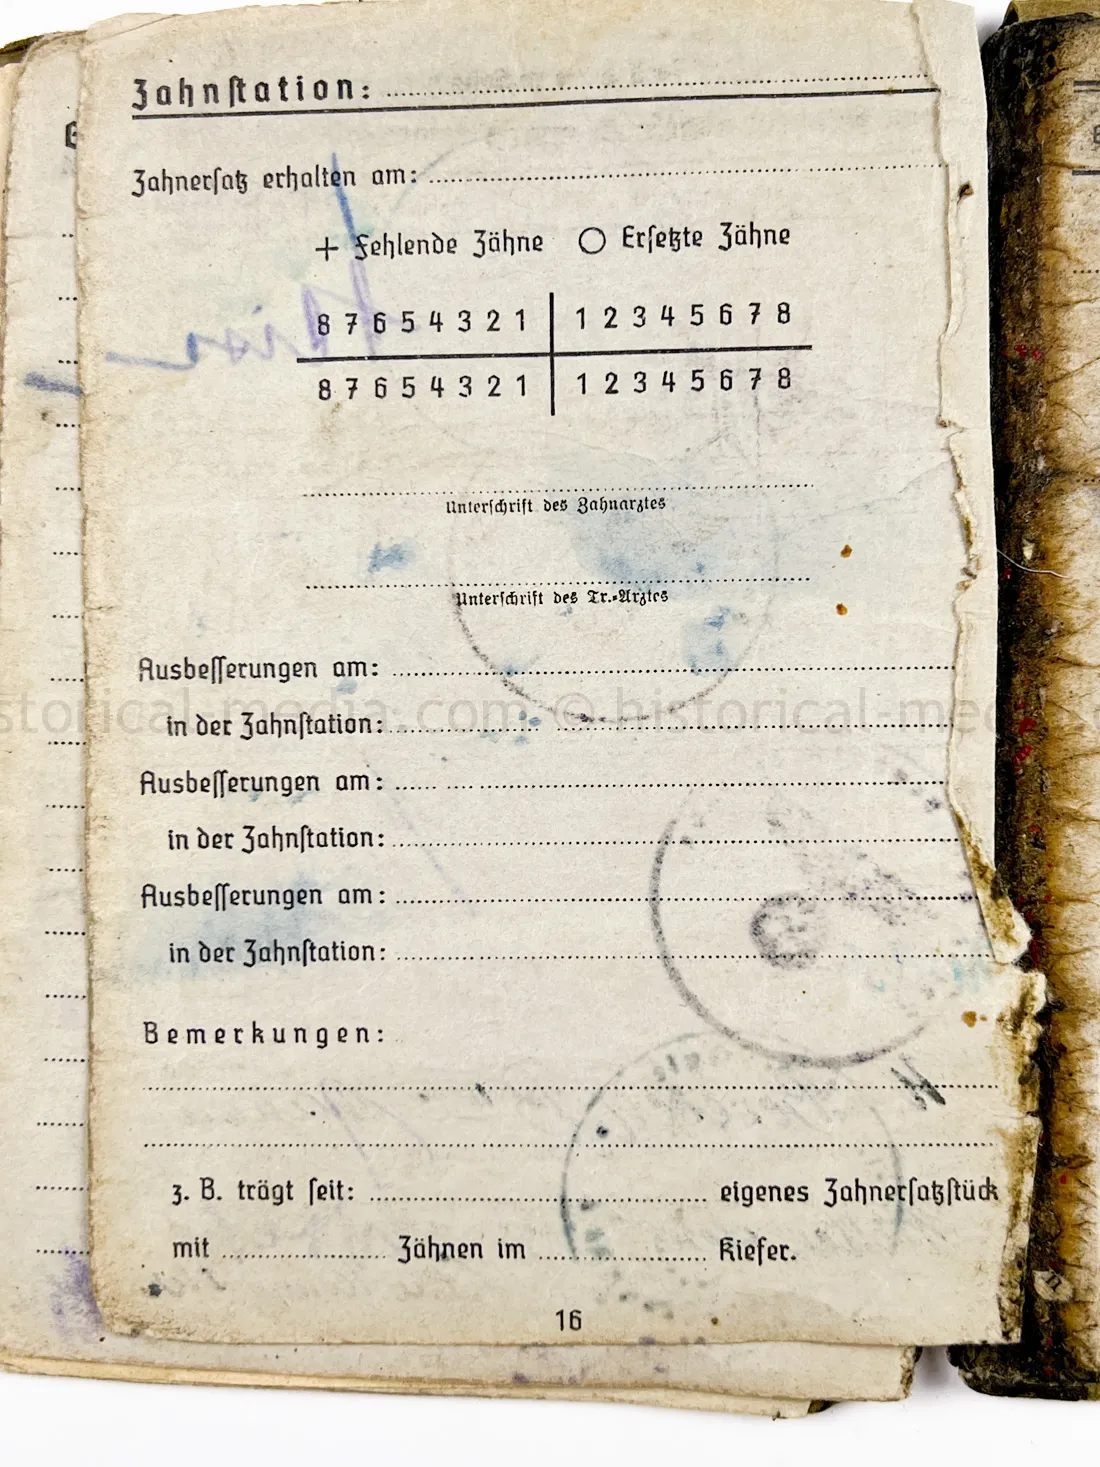 Zahnſtation:
Zahnerſatz erhalten am:
+ Fehlende Zähne ○ Erſetzte Zähne
8 7 6 5 4 3 2 1 1 2 3 4 5 6 7 8
8 7 6 5 4 3 2 1 1 2 3 4 5 6 7 8
Unterſchrift des Zahnarztes
Unterſchrift des Tr.-Arztes
Ausbeſſerungen am:
storical-media.com © historical-med
in der Zahnſtation:
Ausbeſſerungen am:
in der Zahnſtation:
Ausbeſſerungen am:
in der Zahnſtation:
Bemerkungen:
z. B. trägt ſeit: eigenes Zahnerſatzſtück
mit Zähnen im Kiefer.
16